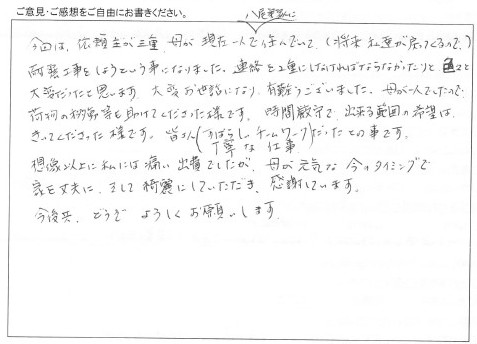 ご意見・ご感想をご自由にお書きください。
八尾
今回は、依頼主が三重、母が現在一人で住んでいて、(将来私達が戻ってくるので、)
耐震工事をしようという事になりました。連絡を2重にしなければならなかったりと 色々と
大変だったと思います。大変お世話になり、有難うございました。母が一人でしたので
荷物の移動等も助けてくださった様です。時間厳守で、出来る範囲の希望は、
きいてくださった様です。皆さん(すばらしいチームワーク
丁寧な仕事)だったとの事です。
想像以上に私には痛い出費でしたが、母が元気な今のタイミングで
家を丈夫に、そして綺麗にしていただき、感謝しています。
今後共、どうぞよろしくお願いします。